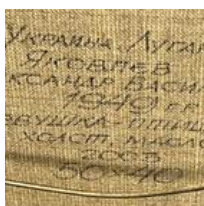 Украина Луган
Яковлев
ксандр Васи
1949 г.р
вушка-птиц
холст. масло
2005
50×40